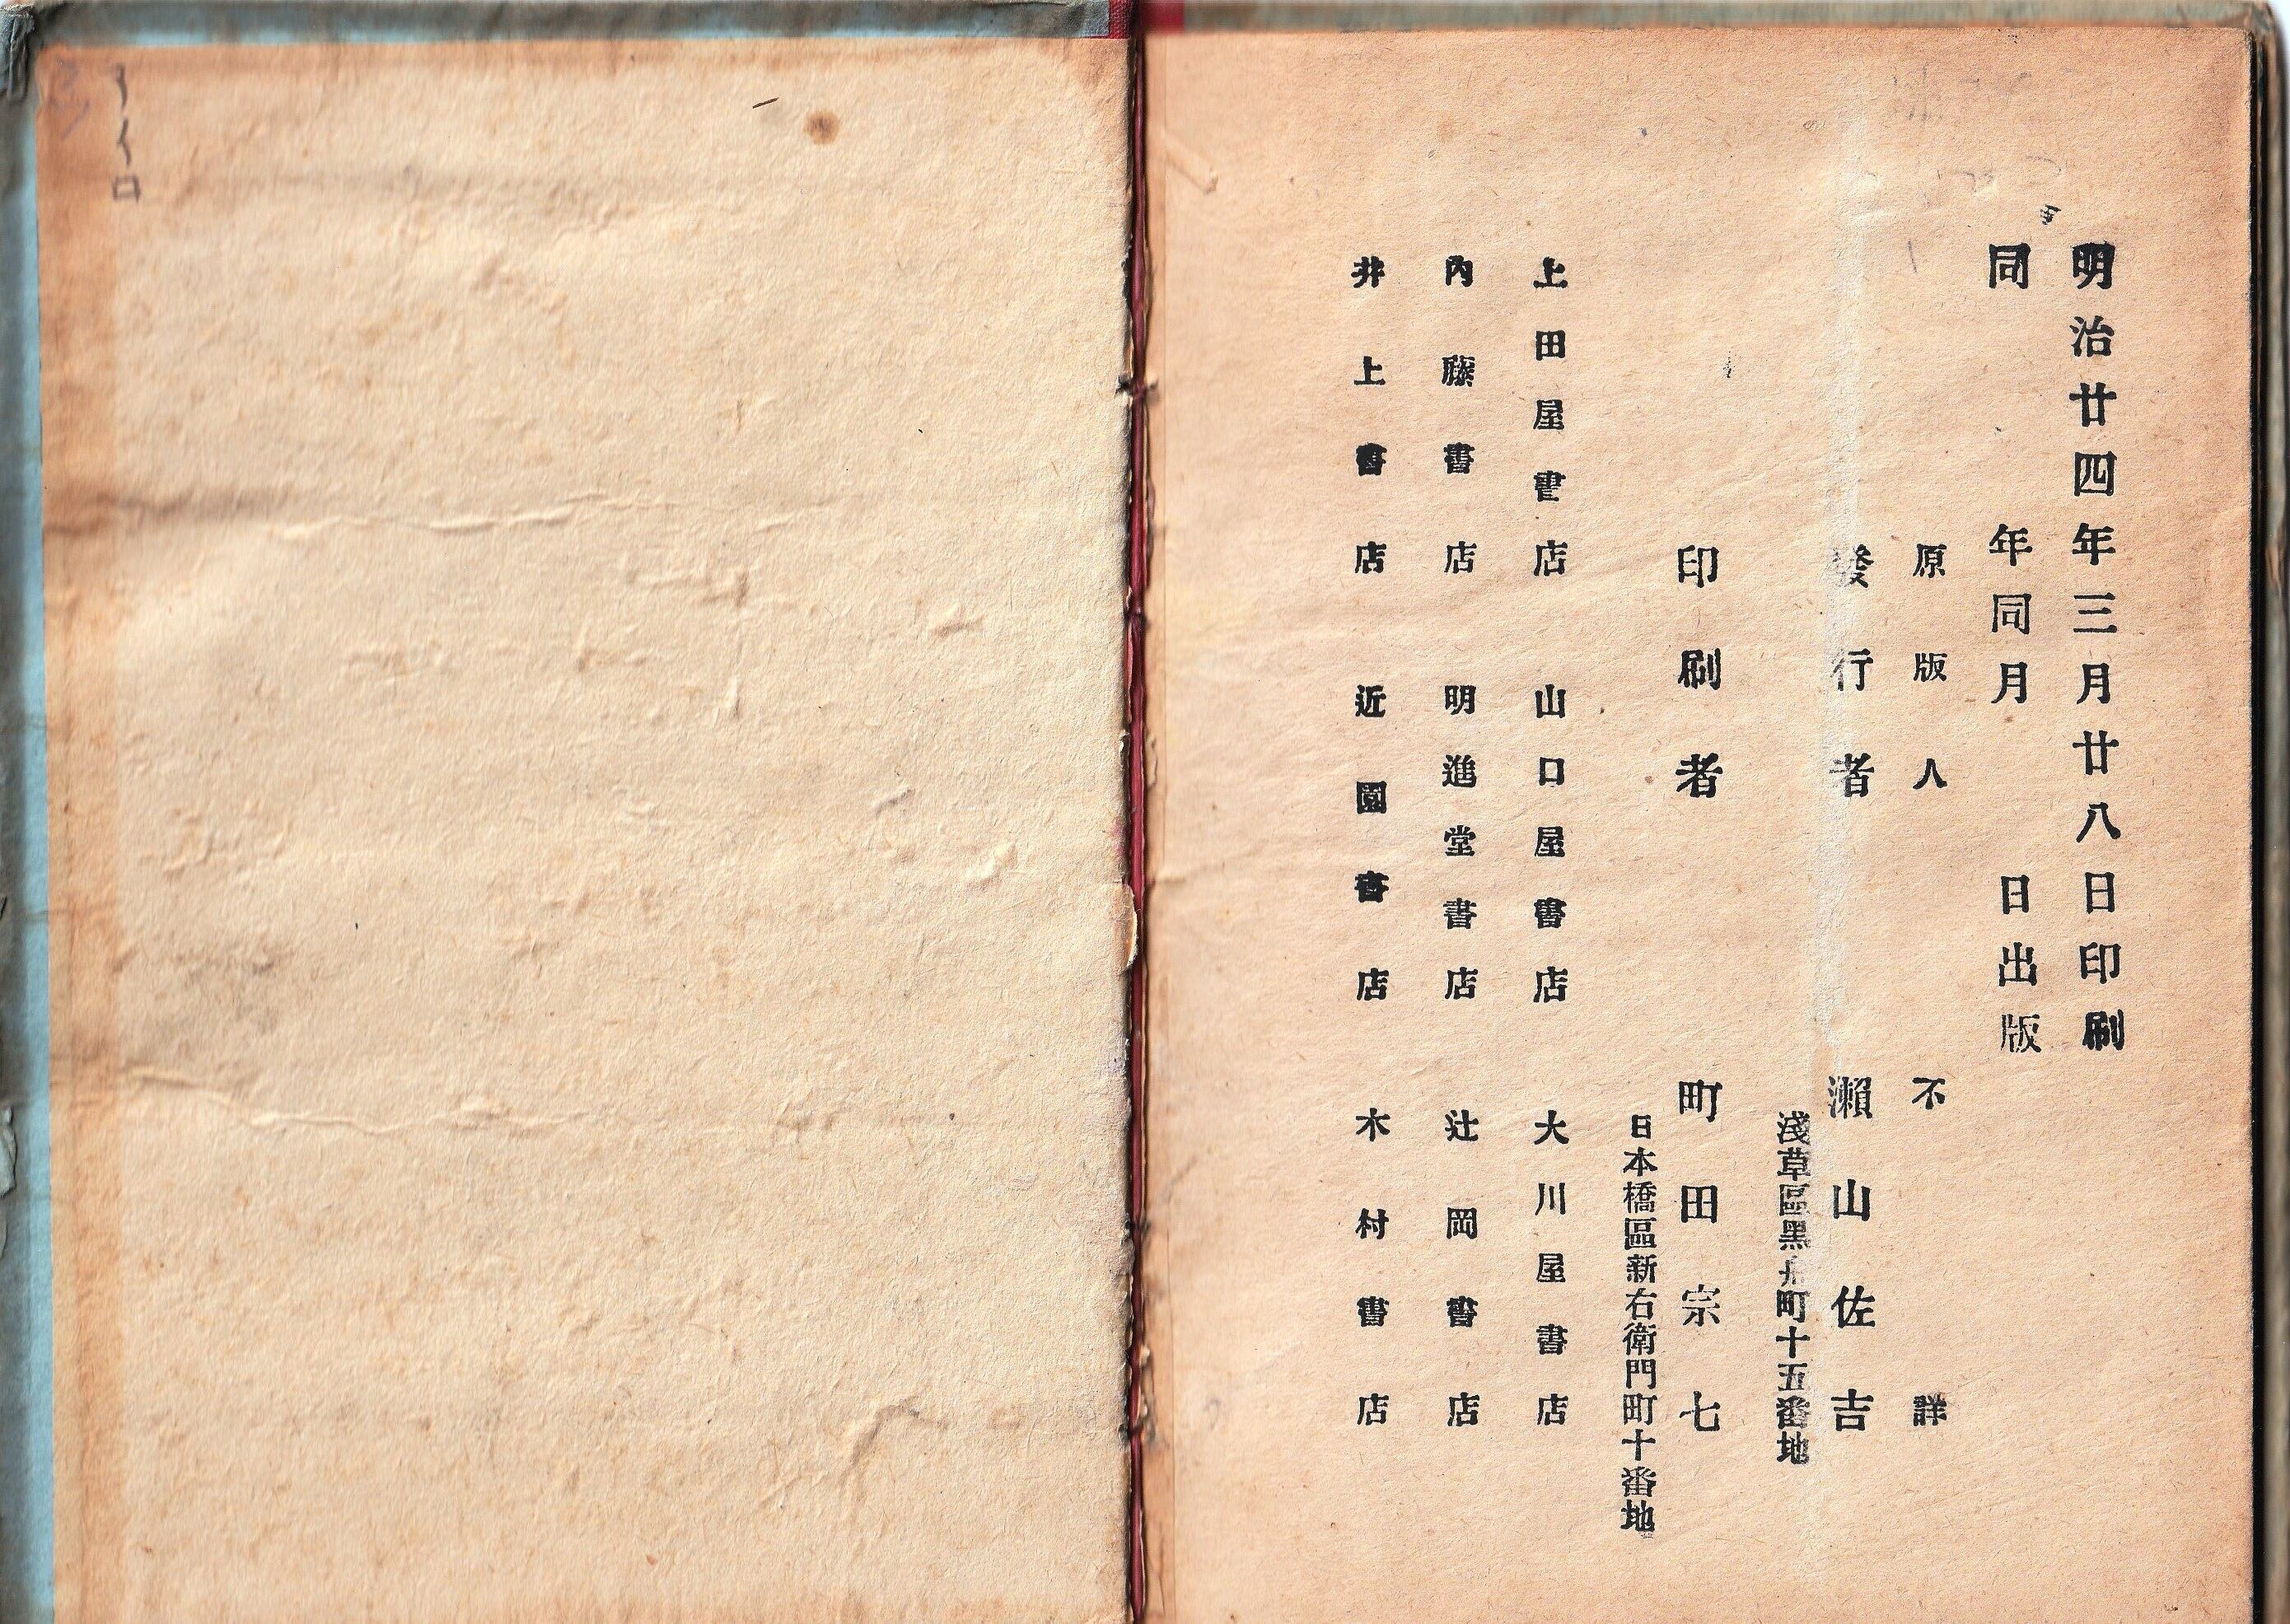 明治廿四年三月廿八日印刷
同年同月日出版
原版人 不詳
發行者 瀨山佐吉
淺草區黑舟町十五番地
印刷者 町田宗七
日本橋區新右衛門町十番地
上田屋書店 山口屋書店 大川屋書店
內藤書店 明進堂書店 辻岡書店
井上書店 近園書店 木村書店